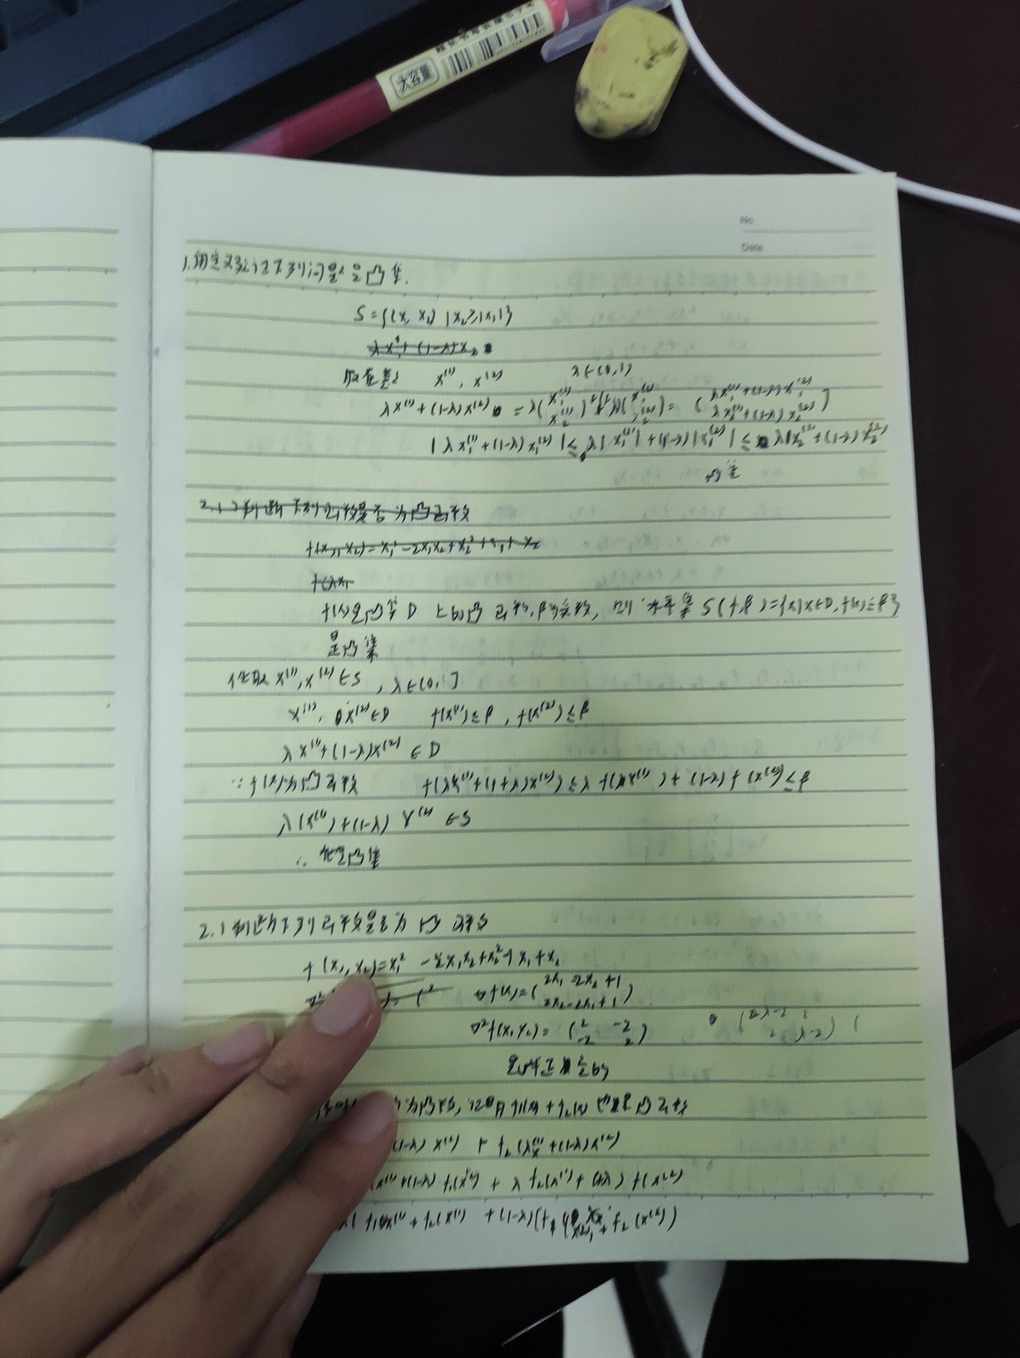 大容量
No
Date
1.用定义验证下列问题是凸集.
S={(x, x₂) | x₂≥|x₁|}
λx₁ + (1-λ)x₂
取任意 x⁽¹⁾, x⁽²⁾ λ∈(0,1)
λx⁽¹⁾+(1-λ)x⁽²⁾ =
|λx₁⁽¹⁾+(1-λ)x₁⁽²⁾| ≤ λ|x₁⁽¹⁾|+(1-λ)|x₁⁽²⁾| ≤
2.1 判断下列函数是否为凸函数
f(x₁,x₂)=x₁²-2x₁x₂+x₂²+x₁+x₂
f(λx₁
f(x)是凸集D上的凸函数,β为实数, 则 水平集 S(f,β)={x|x∈D,f(x)≤β}
是凸集
任取 x⁽¹⁾,x⁽²⁾∈S , λ∈[0,1]
x⁽¹⁾, x⁽²⁾∈D f(x⁽¹⁾)≤β , f(x⁽²⁾)≤β
λx⁽¹⁾+(1-λ)x⁽²⁾ ∈ D
∵f(x)为凸函数 f(λx⁽¹⁾+(1+λ)x⁽²⁾)≤λ f(λx⁽¹⁾) + (1-λ) f(x⁽²⁾)≤β
λ(x⁽¹⁾)+(1-λ) x⁽²⁾ ∈S
∴ 是凸集
2.1 判断下列函数是否为凸函数
f(x₁,x₂)=x₁²-2x₁x₂+x₂²+x₁+x₂
∇f(x)=(2x₁-2x₂+1
2x₂-2x₁+1)
∇²f(x₁,x₂)= (2 -2
-2 2)
是半正定的
为凸函数, 证明 f₁(x) + f₂(x) 也是凸函数
(1-λ) x⁽¹⁾ + f₂(λx⁽¹⁾+(1-λ)x⁽²⁾)
x⁽¹⁾+(1-λ) f₁(x⁽²⁾) + λ f₂(x⁽¹⁾)+(1-λ) f(x⁽²⁾)
f₁(x⁽¹⁾+f₂(x⁽¹⁾) +(1-λ)(f₁ + f₂(x⁽²⁾))